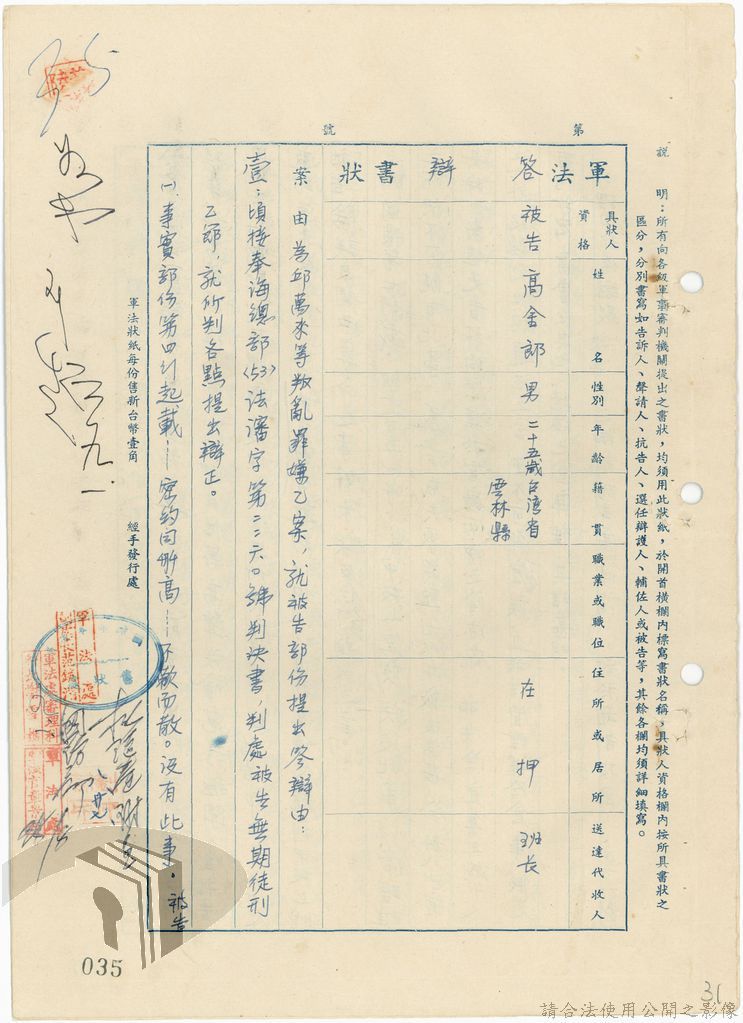 說明：所有向各級軍事審判機關提出之書狀，均須用此狀紙，於開首橫欄內標寫書狀名稱，具狀人資格欄內按所具書狀之
區分，分別書寫如告訴人、聲請人、抗告人、選任辯護人、輔佐人或被告等，其餘各欄均須詳細填寫。
第 號
軍法答辯書狀
具狀人資格
姓名
性別
年齡
籍貫
職業或職位
住所或居所
送達代收人
被告
高金郎
男
二十五歲
台湾省
雲林縣
在押
班長
案由 為邱萬來等叛亂罪嫌乙案，就被告部份提出答辯由：
壹：頃接奉海總部(53)法審字第二二六〇號判決書，判處被告無期徒刑
乙節，就所判各點提出辯正。
㈠事實部份第四行起載……密約同舟高……不歡而散。沒有此事。被告
軍法狀紙每份售新台幣壹角
經手發行處
035
31
請合法使用公開之影像